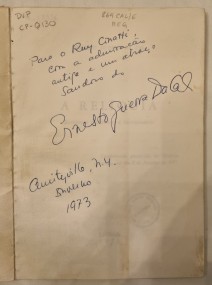 DIP
CP-Q130
Para o Ruy Cinatti
com a admiração
antiga e um abraço
Saudoso do
Ernesto Guerra Da Cal
Amityville, N.Y.
1973